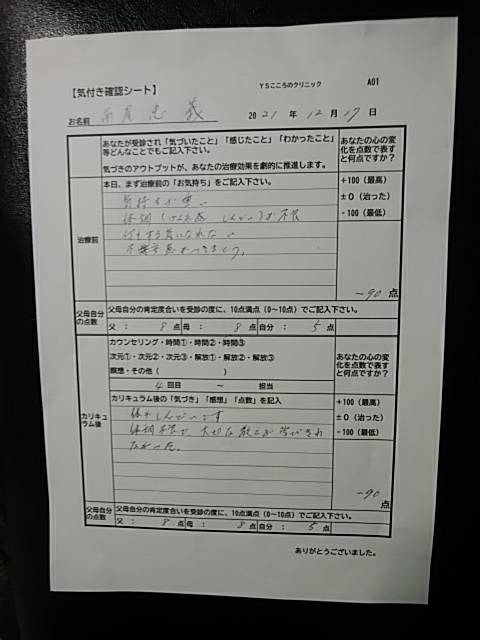 YSこころのクリニック A01
【気付き確認シート】
お名前 忠義 2021年12月17日
あなたが受診され「気づいたこと」「感じたこと」「わかったこと」
等どんなことでもご記入下さい。
気づきのアウトプットが、あなたの治療効果を劇的に推進します。
あなたの心の変
化を点数で表す
と何点ですか?
治療前
本日、まず治療前の「お気持ち」をご記入下さい。
気持ちが重い
体調(けん怠感 しんどい)が不良
何もする気になれない
不安感がつきまとう。
+100(最高)
±0(治った)
-100(最低)
-90点
父母自分
の点数
父母自分の肯定度合いを受診の度に、10点満点(0~10点)でご記入下さい。
父: 8点 母: 8点 自分: 5点
カリキュ
ラム後
カウンセリング・時間①・時間②・時間③
次元①・次元②・次元③・解放①・解放②・解放③
瞑想・その他( )
4回目 ~ 担当
カリキュラム後の「気づき」「感想」「点数」を記入
体がしんどいです
体調不良で、大切な教えが学びきれ
なかった。
あなたの心の変
化を点数で表す
と何点ですか?
+100(最高)
±0(治った)
-100(最低)
-90点
父母自分
の点数
父母自分の肯定度合いを受診の度に、10点満点(0~10点)でご記入下さい。
父: 8点 母: 8点 自分: 5点
ありがとうございました。